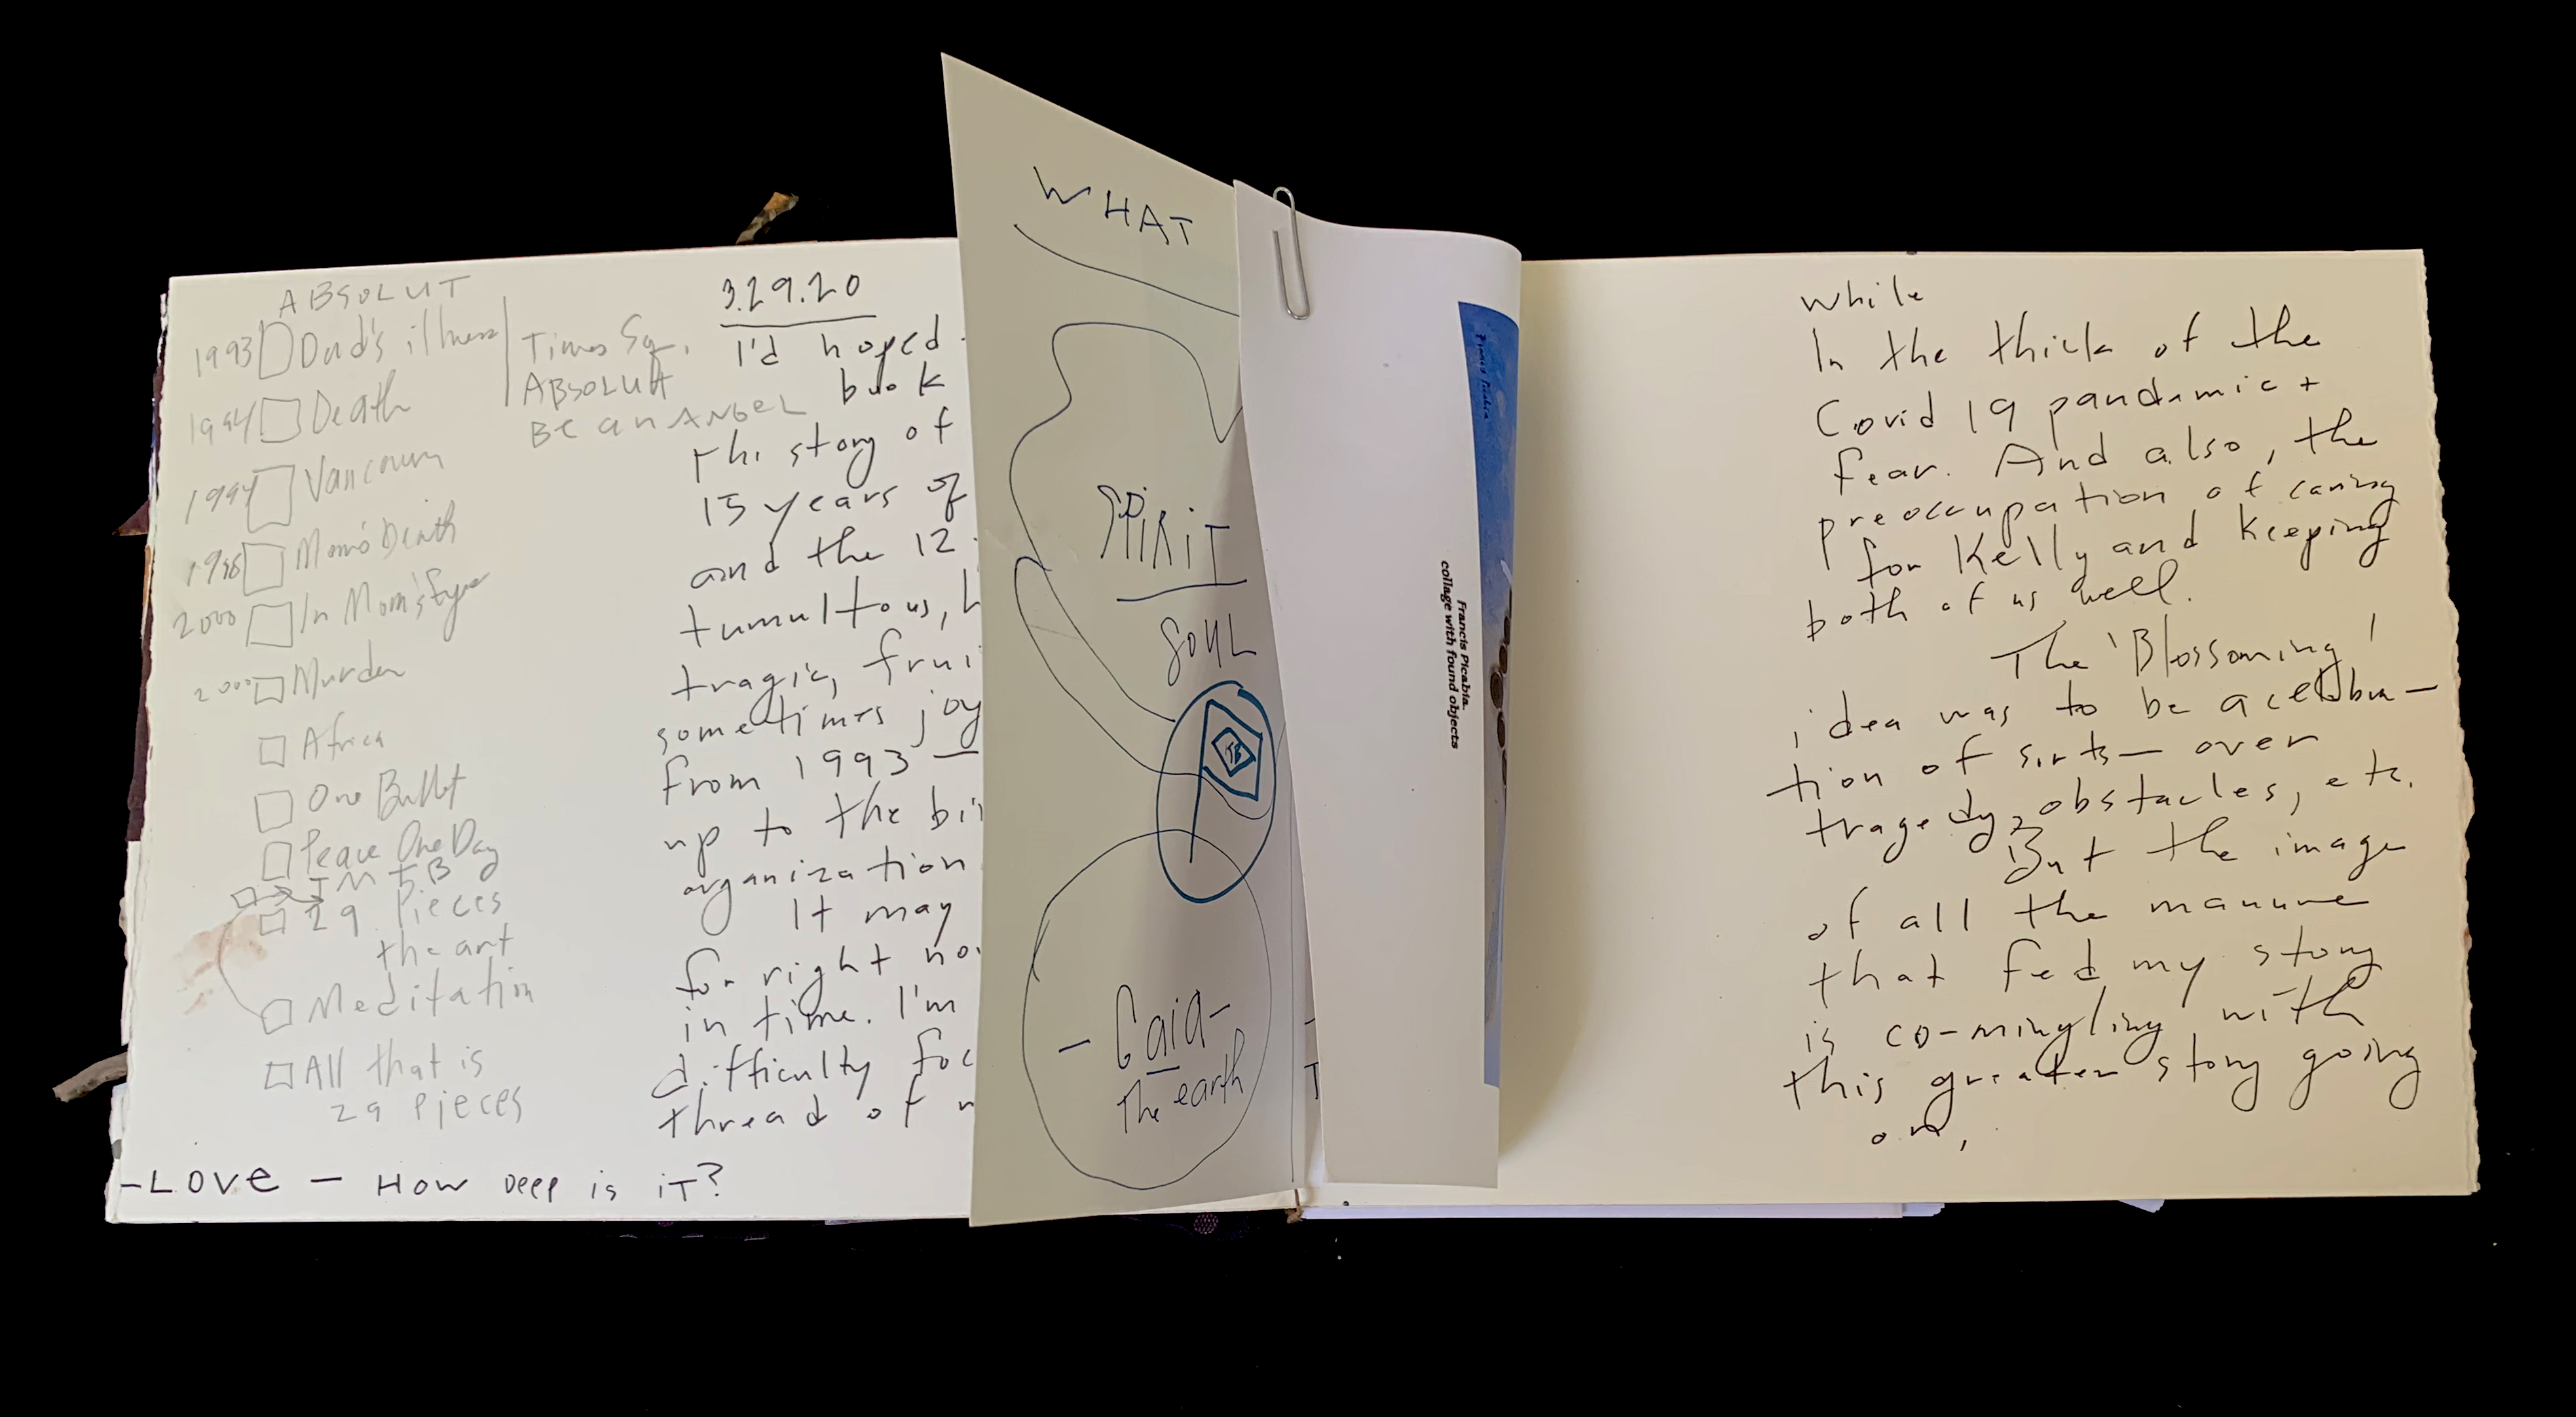 ABSOLUT
1993 Dad's illness
Times Sq.
ABSOLUT
BE an ANGEL
1994 Death
1994 Vancouver
1998 Mom's Death
2000 In Mom's Eyes
2000 Murder
Africa
One Bullet
Peace One Day
29 Pieces
the art
Meditation
All that is
29 Pieces
3.29.20
I'd hoped
book
The story of
15 years of
and the 12
tumultous,
tragic, frui
sometimes joy
from 1993 —
up to the bi
organization
It may
for right no
in time. I'm
difficulty foc
thread of
-LOVE - HOW DEEP is iT?
WHAT
SPiRiT
SOUL
- Gaia -
The earth
Francis Picabia.
collage with found objects
while
In the thick of the
Covid 19 pandemic +
fear. And also, the
preoccupation of caring
for Kelly and keeping
both of us well.
The 'Blossoming'
idea was to be a celebra-
tion of sorts — over
tragedy, obstacles, etc.
But the image
of all the manure
that fed my story
is co-mingling with
this greater story going
on,